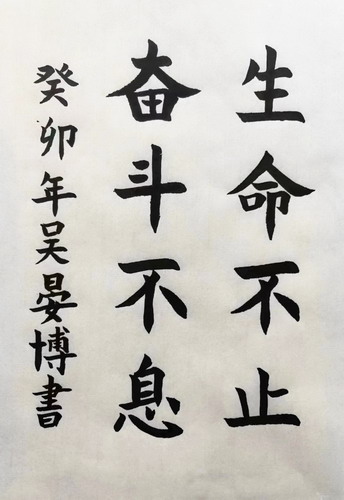 生命不止
奋斗不息
癸卯年吴晏博書